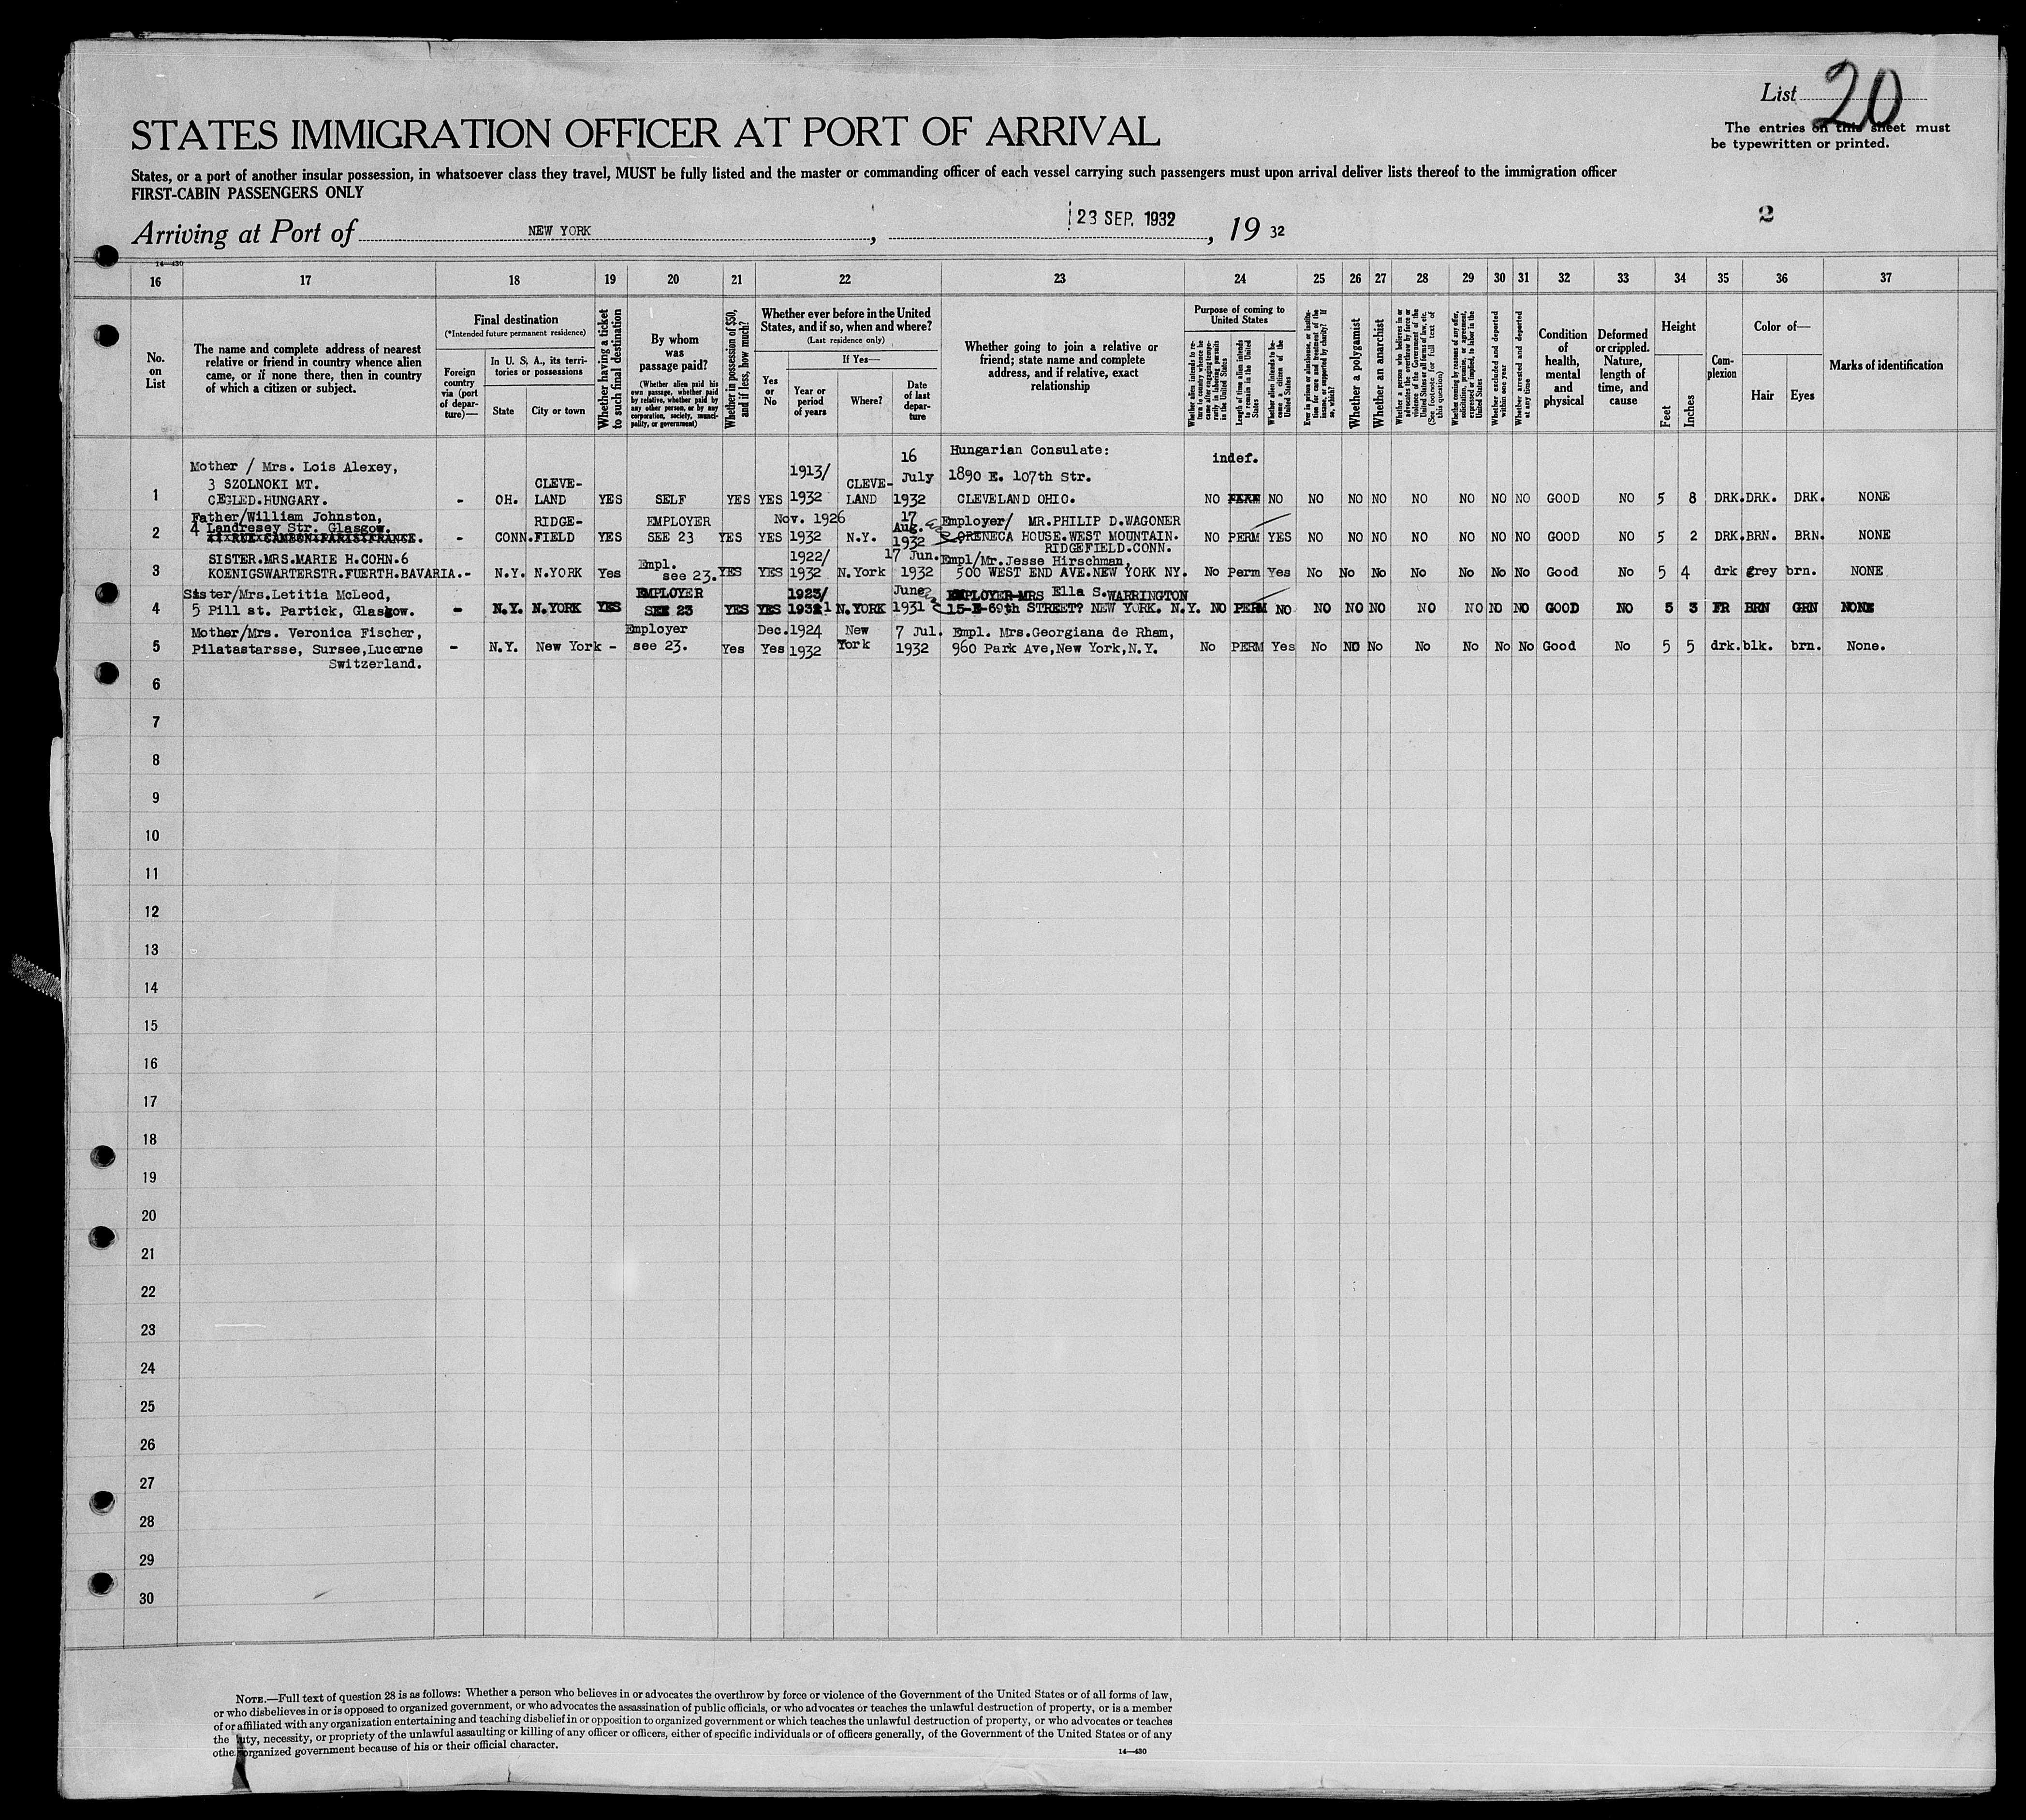 List 20
The entries on this sheet must
be typewritten or printed.
STATES IMMIGRATION OFFICER AT PORT OF ARRIVAL
States, or a port of another insular possession, in whatsoever class they travel, MUST be fully listed and the master or commanding officer of each vessel carrying such passengers must upon arrival deliver lists thereof to the immigration officer
FIRST-CABIN PASSENGERS ONLY
Arriving at Port of NEW YORK, 23 SEP. 1932, 19 32
2
14—430
16 17 18 19 20 21 22 23 24 25 26 27 28 29 30 31 32 33 34 35 36 37
No. on List
The name and complete address of nearest
relative or friend in country whence alien
came, or if none there, then in country
of which a citizen or subject.
Final destination
(*Intended future permanent residence)
Foreign country via (port of departure)—
In U. S. A., its territories or possessions
State
City or town
Whether having a ticket to such final destination
By whom was passage paid?
(Whether alien paid his own passage, whether paid by relative, whether paid by any other person, or by any corporation, society, municipality, or government)
Whether in possession of $50, and if less, how much?
Whether ever before in the United
States, and if so, when and where?
(Last residence only)
Yes or No
If Yes—
Year or period of years
Where?
Date of last departure
Whether going to join a relative or
friend; state name and complete
address, and if relative, exact
relationship
Purpose of coming to
United States
Whether alien intends to return to country whence he came after engaging temporarily in laboring pursuits in the United States
Length of time alien intends to remain in the United States
Whether alien intends to become a citizen of the United States
Ever in prison or almshouse, or institution for care and treatment of the insane, or supported by charity? If so, which?
Whether a polygamist
Whether an anarchist
Whether a person who believes in or advocates the overthrow by force or violence of the Government of the United States or all forms of law, etc. (See footnote for full text of this question)
Whether coming by reasons of any offer, solicitation, promise, or agreement, expressed or implied, to labor in the United States
Whether excluded and deported within one year
Whether arrested and deported at any time
Condition of health, mental and physical
Deformed or crippled. Nature, length of time, and cause
Height
Feet
Inches
Complexion
Color of—
Hair
Eyes
Marks of identification
Mother / Mrs. Lois Alexey, 1913/ 16 July Hungarian Consulate: indef.
3 SZOLNOKI MT. CLEVE- CLEVE- 1890 E. 107th Str.
1 CEGLED.HUNGARY. - OH. LAND YES SELF YES YES 1932 LAND 1932 CLEVELAND OHIO. NO PERM NO NO NO NO NO NO NO NO GOOD NO 5 8 DRK. DRK. DRK. NONE
Father/William Johnston, RIDGE- EMPLOYER Nov. 1926 17 Aug. Employer/ MR.PHILIP D.WAGONER
4 Landresey Str. Glasgow.
2 41 RUE CAMBON.PARIS.FRANCE. - CONN. FIELD YES SEE 23 YES YES 1932 N.Y. 1932 HOUSE.WEST MOUNTAIN. NO PERM YES NO NO NO NO NO NO NO GOOD NO 5 2 DRK. BRN. BRN. NONE
RIDGEFIELD.CONN.
SISTER.MRS.MARIE H.COHN.6 Empl. 1922/ 17 Jun. Empl/Mr.Jesse Hirschman,
3 KOENIGSWARTERSTR.FUERTH.BAVARIA.- N.Y. N.YORK Yes see 23. YES YES 1932 N.York 1932 500 WEST END AVE.NEW YORK NY. No Perm Yes No No No No No No No Good No 5 4 drk grey brn. NONE
Sister/Mrs.Letitia McLeod, EMPLOYER 1923/ June EMPLOYER-MRS Ella S.WARRINGTON
4 5 Pill st. Partick, Glasgow. - N.Y. N.YORK YES SEE 23 YES YES 1931 N.YORK 1931 15-E-69th STREET? NEW YORK. N.Y. NO PERM NO NO NO NO NO NO NO NO GOOD NO 5 3 FR BRN GRN NONE
Mother/Mrs. Veronica Fischer, Employer Dec.1924 New 7 Jul. Empl. Mrs.Georgiana de Rham,
5 Pilatastarsse, Sursee,Lucerne - N.Y. New York - see 23. Yes Yes 1932 York 1932 960 Park Ave,New York,N.Y. No PERM Yes No NO No No No No No Good No 5 5 drk. blk. brn. None.
Switzerland.
6
7
8
9
10
11
12
13
14
15
16
17
18
19
20
21
22
23
24
25
26
27
28
29
30
NOTE.—Full text of question 28 is as follows: Whether a person who believes in or advocates the overthrow by force or violence of the Government of the United States or of all forms of law,
or who disbelieves in or is opposed to organized government, or who advocates the assassination of public officials, or who advocates or teaches the unlawful destruction of property, or is a member
of or affiliated with any organization entertaining and teaching disbelief in or opposition to organized government or which teaches the unlawful destruction of property, or who advocates or teaches
the duty, necessity, or propriety of the unlawful assaulting or killing of any officer or officers, either of specific individuals or of officers generally, of the Government of the United States or of any
other organized government because of his or their official character.
14—430